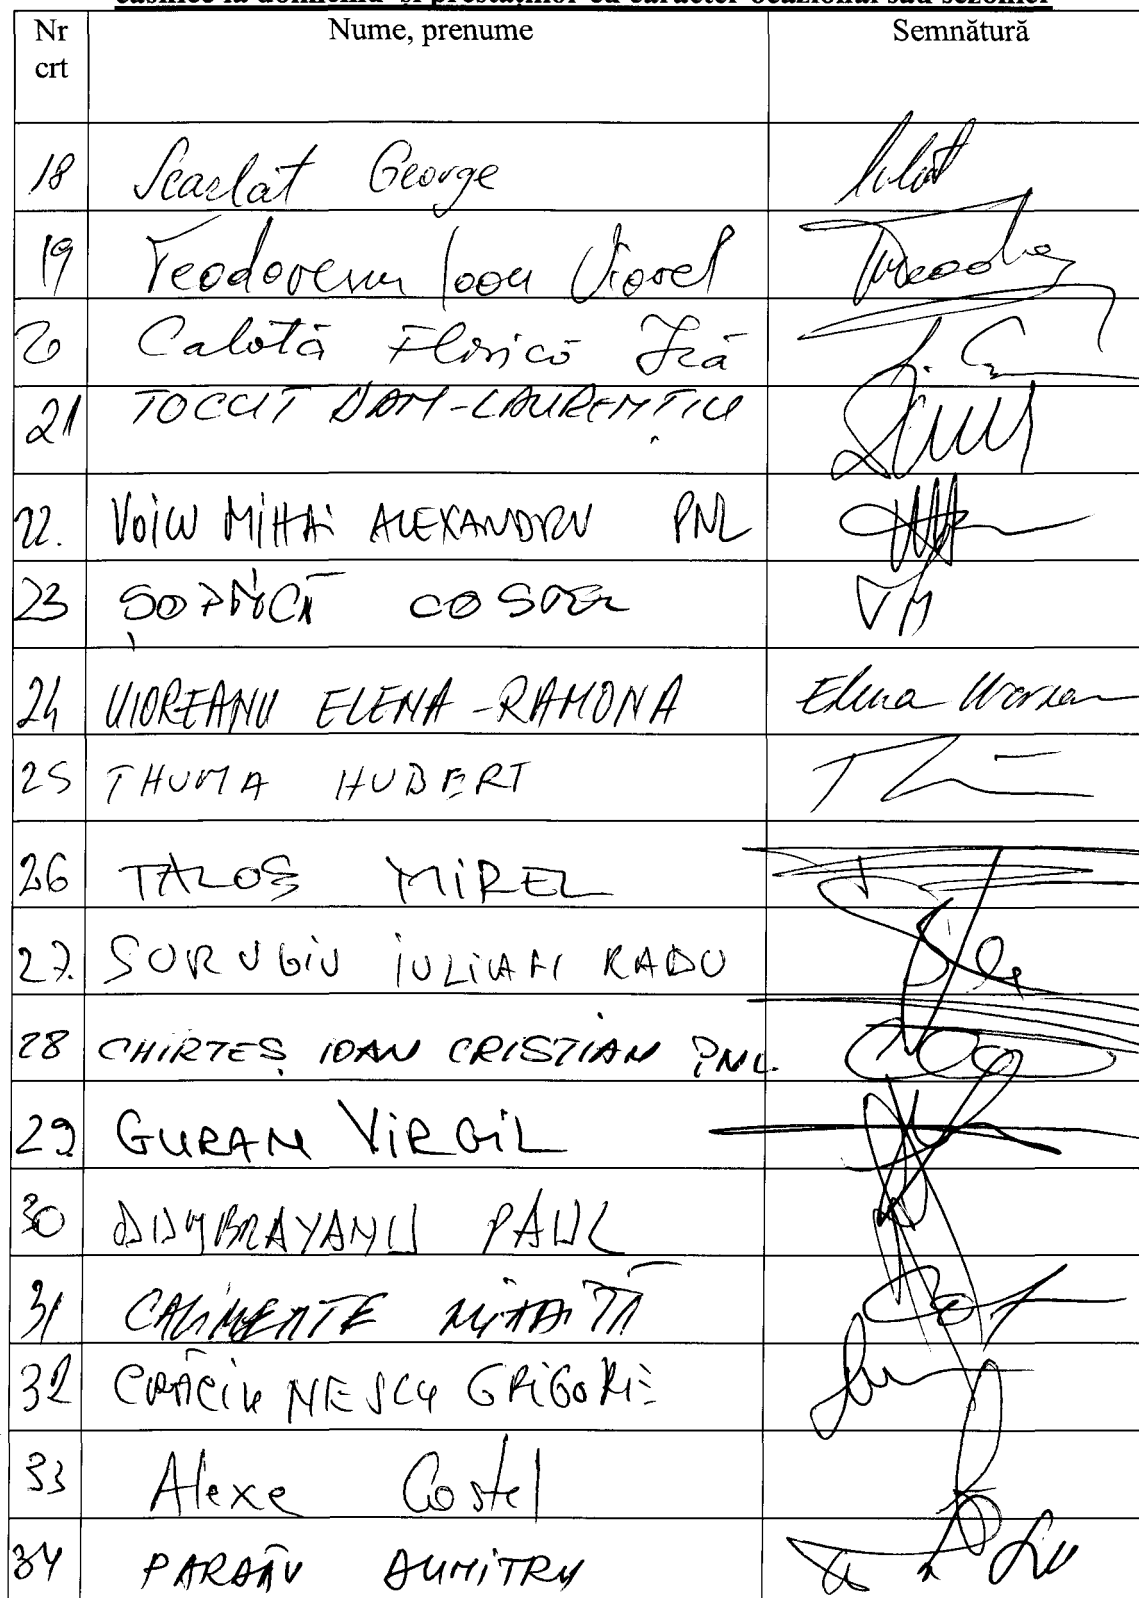 casnice la domiciliu și prestațiilor cu caracter ocazional sau sezonier
Nr crt Nume, prenume Semnătură
18 Scarlat George
19 Teodorescu Ioan Viorel
20 Calotă Florică Ică
21 TOCUT DAN-LAURENȚIU
22. VOICU MIHAI ALEXANDRU PNL
23 ȘOPTICĂ COSTEL
24 VIOREANU ELENA-RAMONA Elena Viorean
25 THUMA HUBERT
26 TALOȘ MIREL
27. SURUGIU IULIAN RADU
28 CHIRTEȘ IOAN CRISTIAN PNL.
29 GURAN VIRGIL
30 DUMBRAVANU PAUL
31 CALIMENTE MIHĂIȚĂ
32 CRĂCIUNESCU GRIGORE
33 Alexe Costel
34 PARDĂU DUMITRU